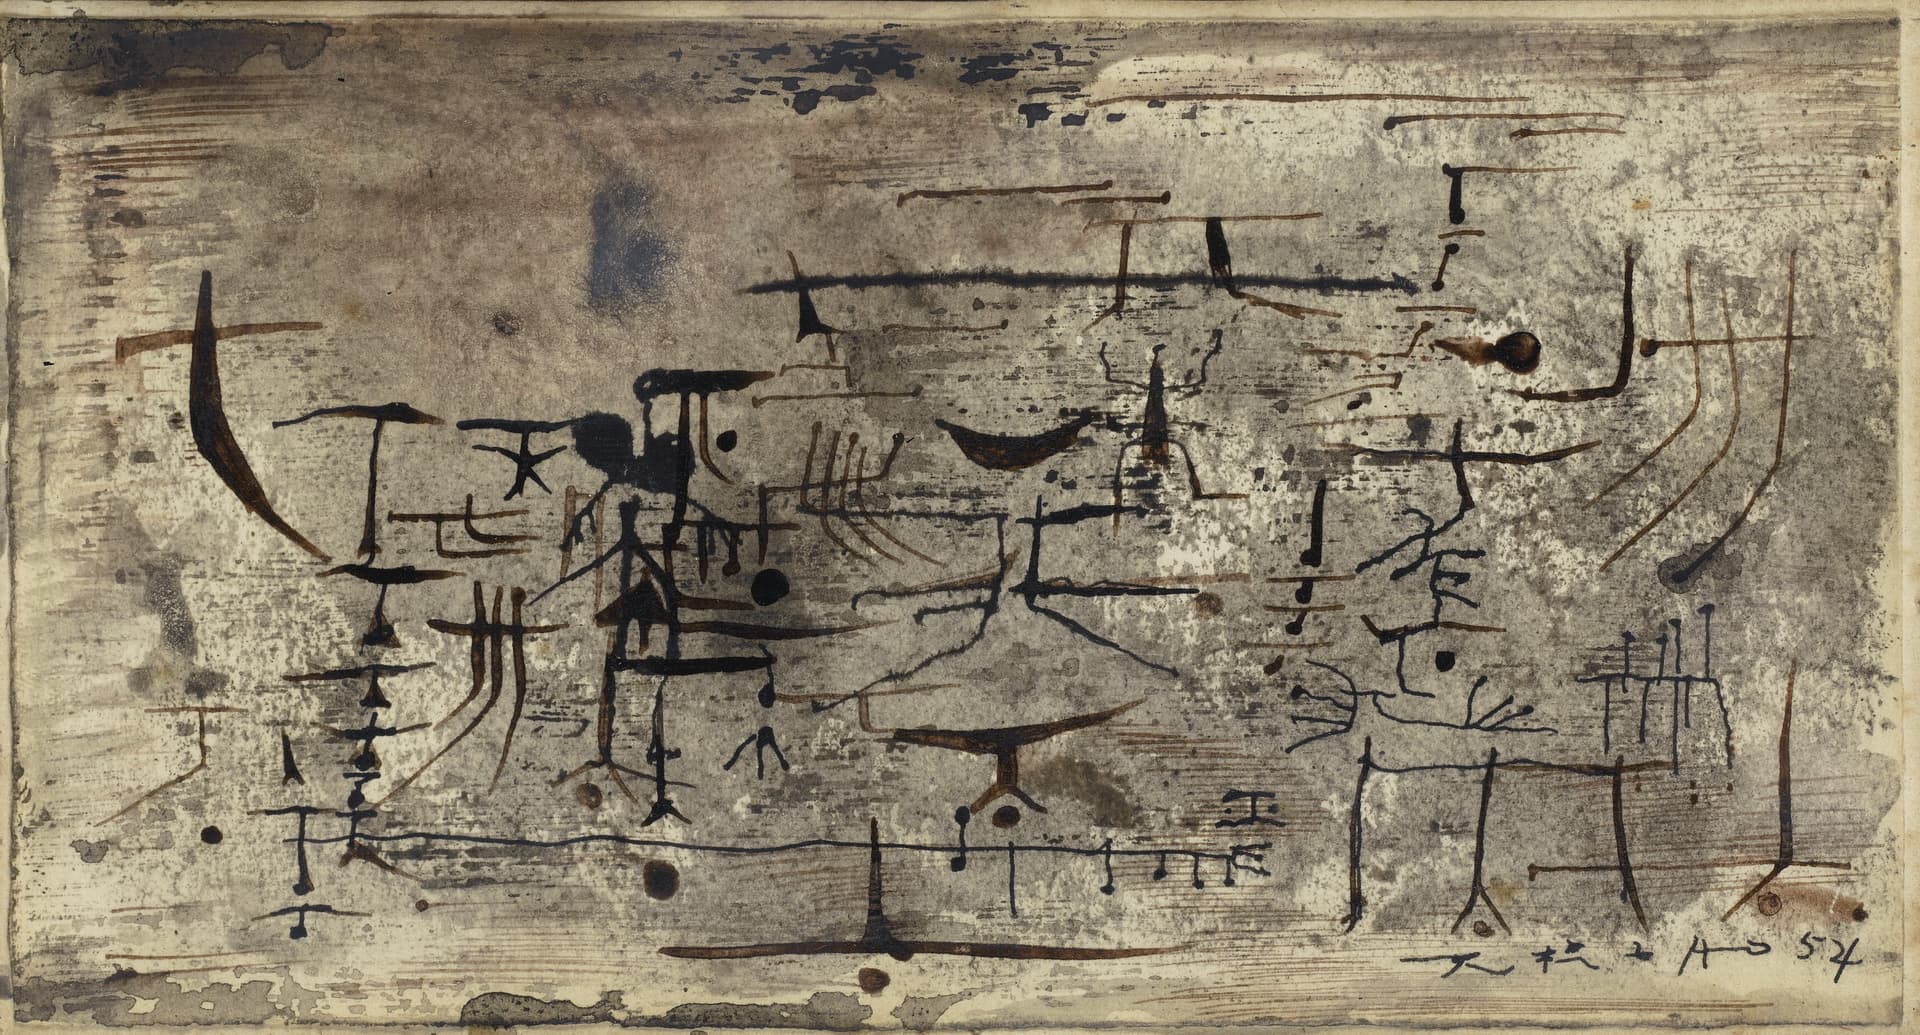 无极 ZAO 54